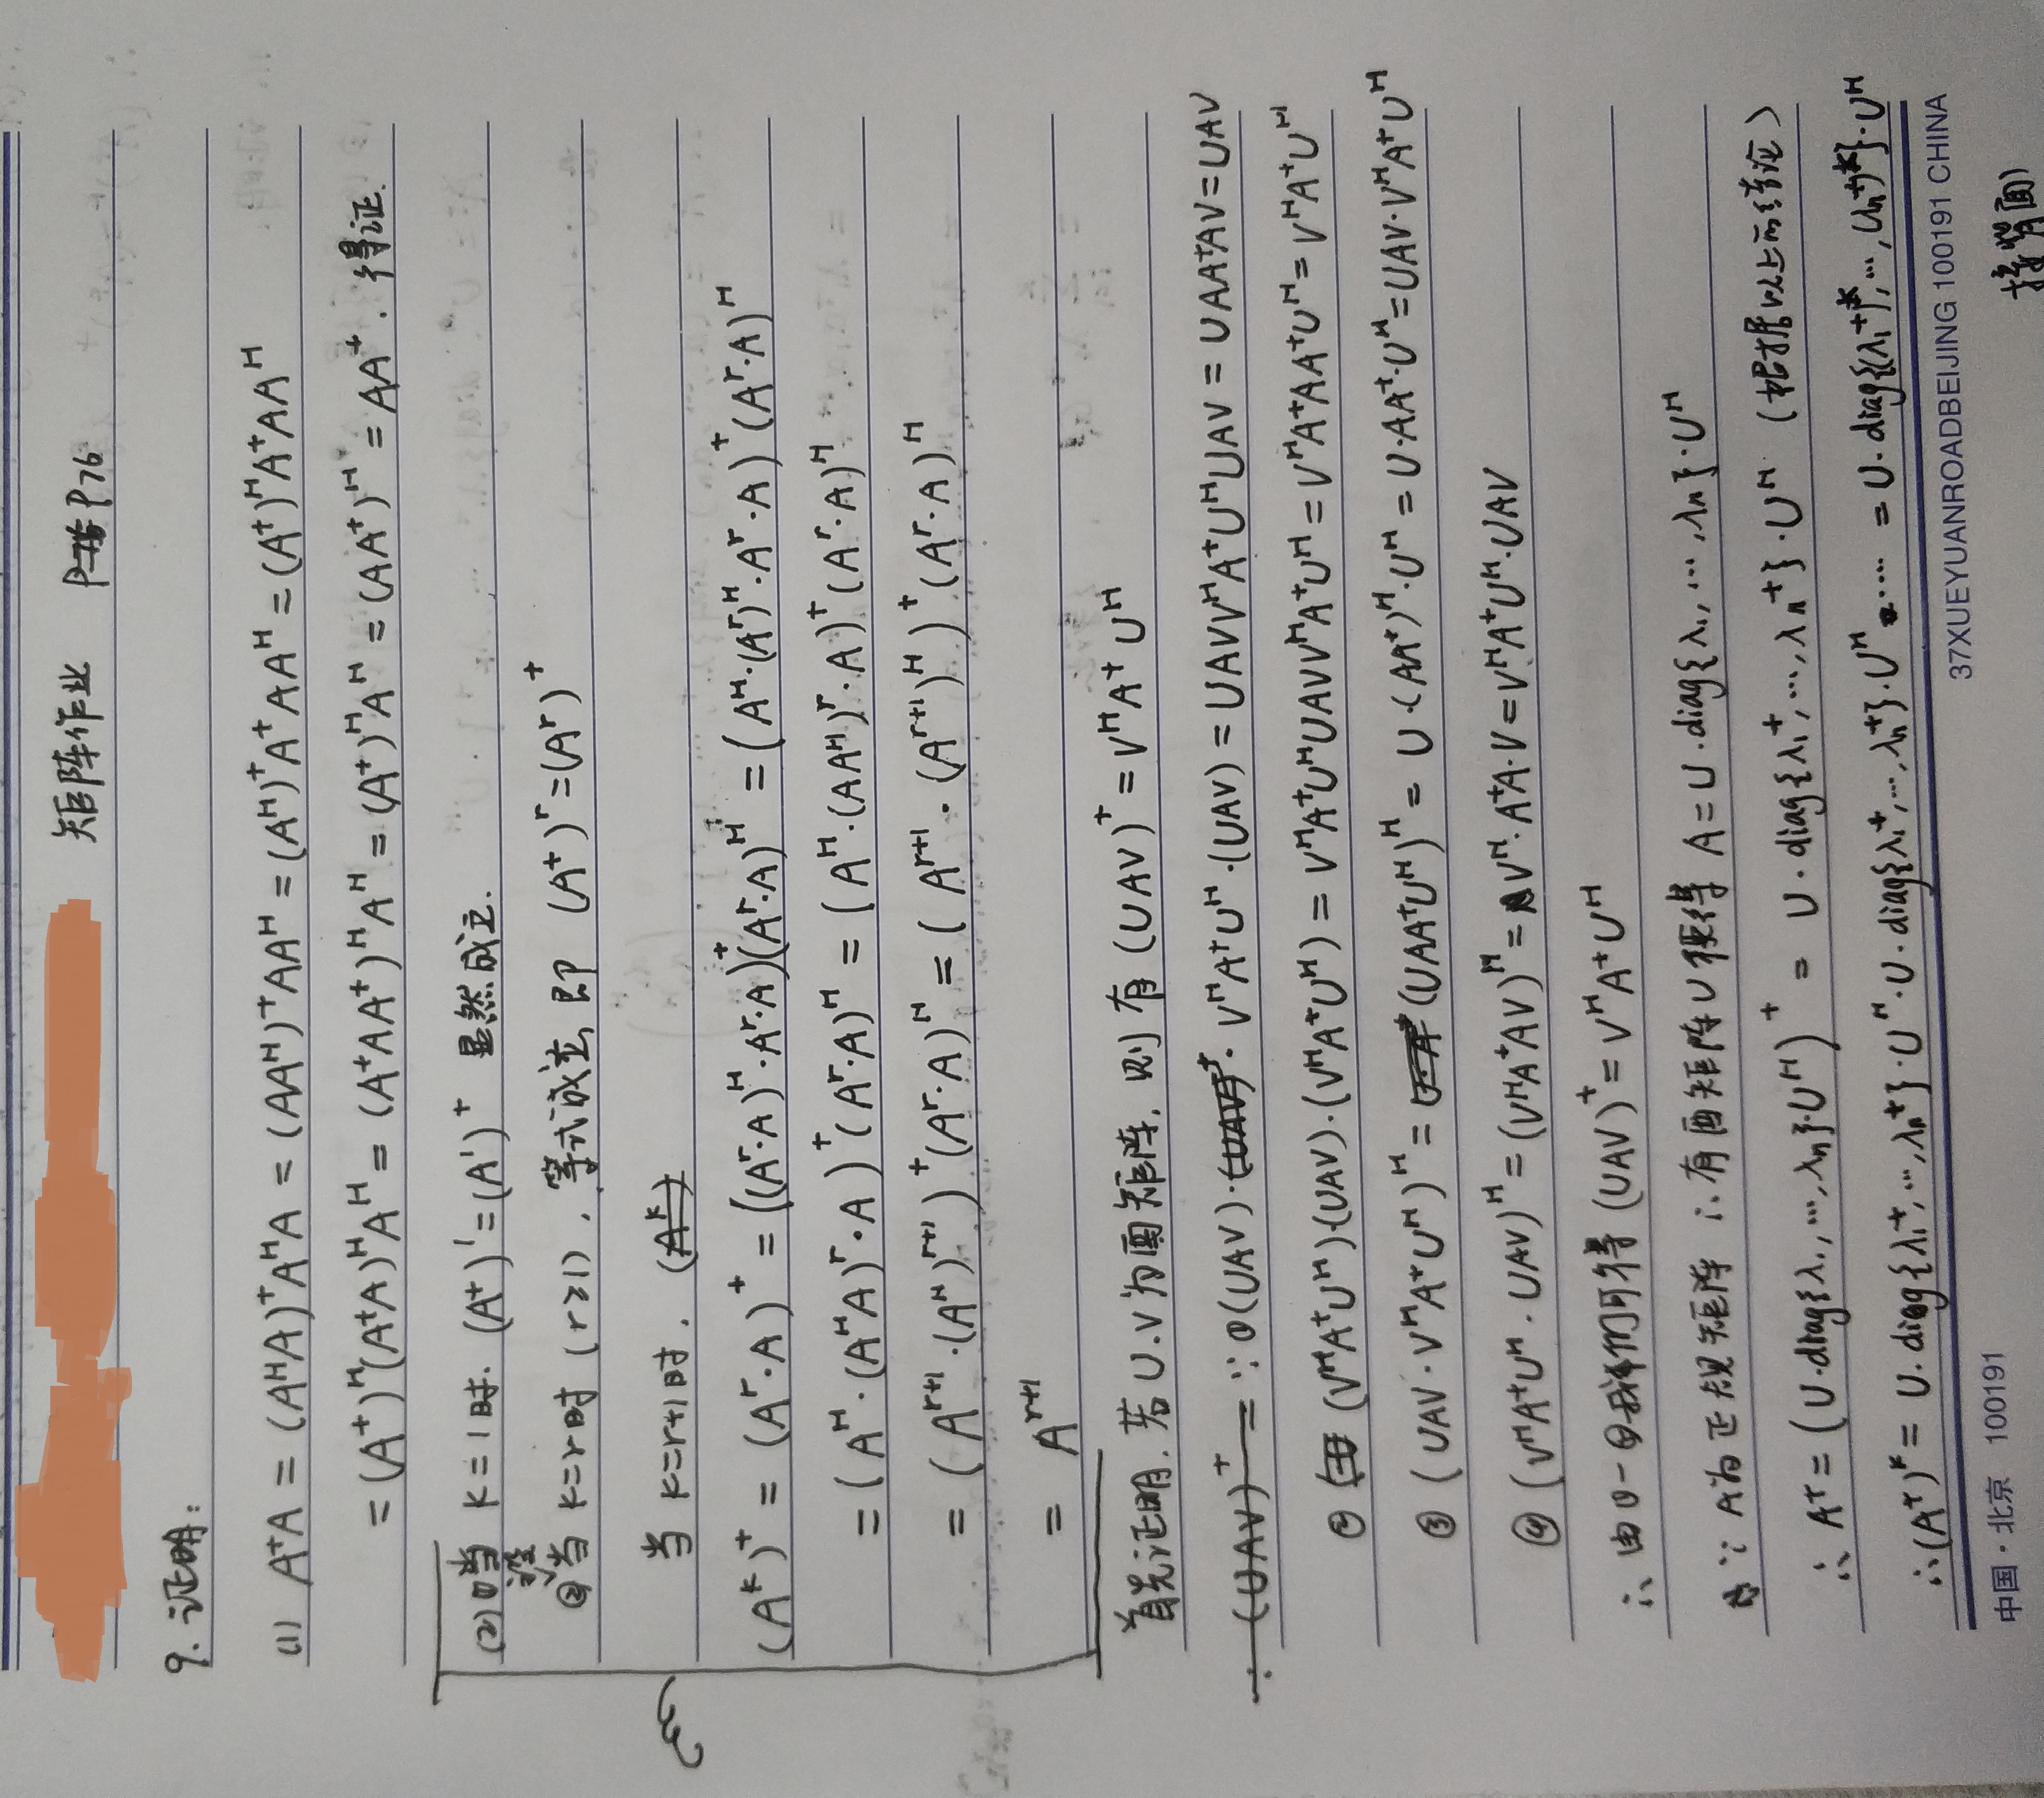 矩阵作业 P76
9. 证明:
(1) A⁺A = (AᴴA)⁺AᴴA = (AAᴴ)⁺AAᴴ = (Aᴴ)⁺A⁺AAᴴ = (A⁺)ᴴA⁺AAᴴ
= (A⁺)ᴴ(A⁺A)ᴴAᴴ = (A⁺AA⁺)ᴴAᴴ = (A⁺)ᴴAᴴ = (AA⁺)ᴴ = AA⁺. 得证.
(2) ①当 k=1时. (A⁺)¹=(A¹)⁺ 显然成立.
②设当 k=r时 (r≥1), 等式成立, 即 (A⁺)ʳ=(Aʳ)⁺
当 k=r+1时. (Aᵏ)
(Aᵏ)⁺ = (Aʳ·A)⁺ = ((Aʳ·A)ᴴ·Aʳ·A)⁺(Aʳ·A)ᴴ = (Aᴴ·(Aʳ)ᴴ·Aʳ·A)⁺(Aʳ·A)ᴴ
= (Aᴴ·(AᴴA)ʳ·A)⁺(Aʳ·A)ᴴ = (Aᴴ·(AAᴴ)ʳ·A)⁺(Aʳ·A)ᴴ
= (Aʳ⁺¹·(Aᴴ)ʳ⁺¹)⁺(Aʳ·A)ᴴ = (Aʳ⁺¹·(Aʳ⁺¹)ᴴ)⁺(Aʳ·A)ᴴ
= Aʳ⁺¹
首先证明. 若U.V为酉矩阵, 则有 (UAV)⁺ = VᴴA⁺Uᴴ
(UAV)⁺ = ∵ ①(UAV)·VᴴA⁺Uᴴ·(UAV) = UAVVᴴA⁺UᴴUAV = UAA⁺AV = UAV
② (VᴴA⁺Uᴴ)·(UAV)·(VᴴA⁺Uᴴ) = VᴴA⁺UᴴUAVVᴴA⁺Uᴴ = VᴴA⁺AA⁺Uᴴ = VᴴA⁺Uᴴ
③ (UAV·VᴴA⁺Uᴴ)ᴴ = (UAA⁺Uᴴ)ᴴ = U·(AA⁺)ᴴ·Uᴴ = U·AA⁺·Uᴴ = UAV·VᴴA⁺Uᴴ
④ (VᴴA⁺Uᴴ·UAV)ᴴ = (VᴴA⁺AV)ᴴ = Vᴴ·A⁺A·V = VᴴA⁺Uᴴ·UAV
∴ 由①-④可得 (UAV)⁺ = VᴴA⁺Uᴴ
∵ A为正规矩阵 ∴有酉矩阵U使得 A=U·diag{λ₁,…,λₙ}·Uᴴ
∴ A⁺ = (U·diag{λ₁,…,λₙ}·Uᴴ)⁺ = U·diag{λ₁⁺,…,λₙ⁺}·Uᴴ (根据以上而结论)
∴ (A⁺)ᵏ = U·diag{λ₁⁺,…,λₙ⁺}·Uᴴ·U·diag{λ₁⁺,…,λₙ⁺}·Uᴴ…… = U·diag{(λ₁⁺)ᵏ,…,(λₙ⁺)ᵏ}·Uᴴ
中国·北京 100191 37XUEYUANROADBEIJING 100191 CHINA
接背面)